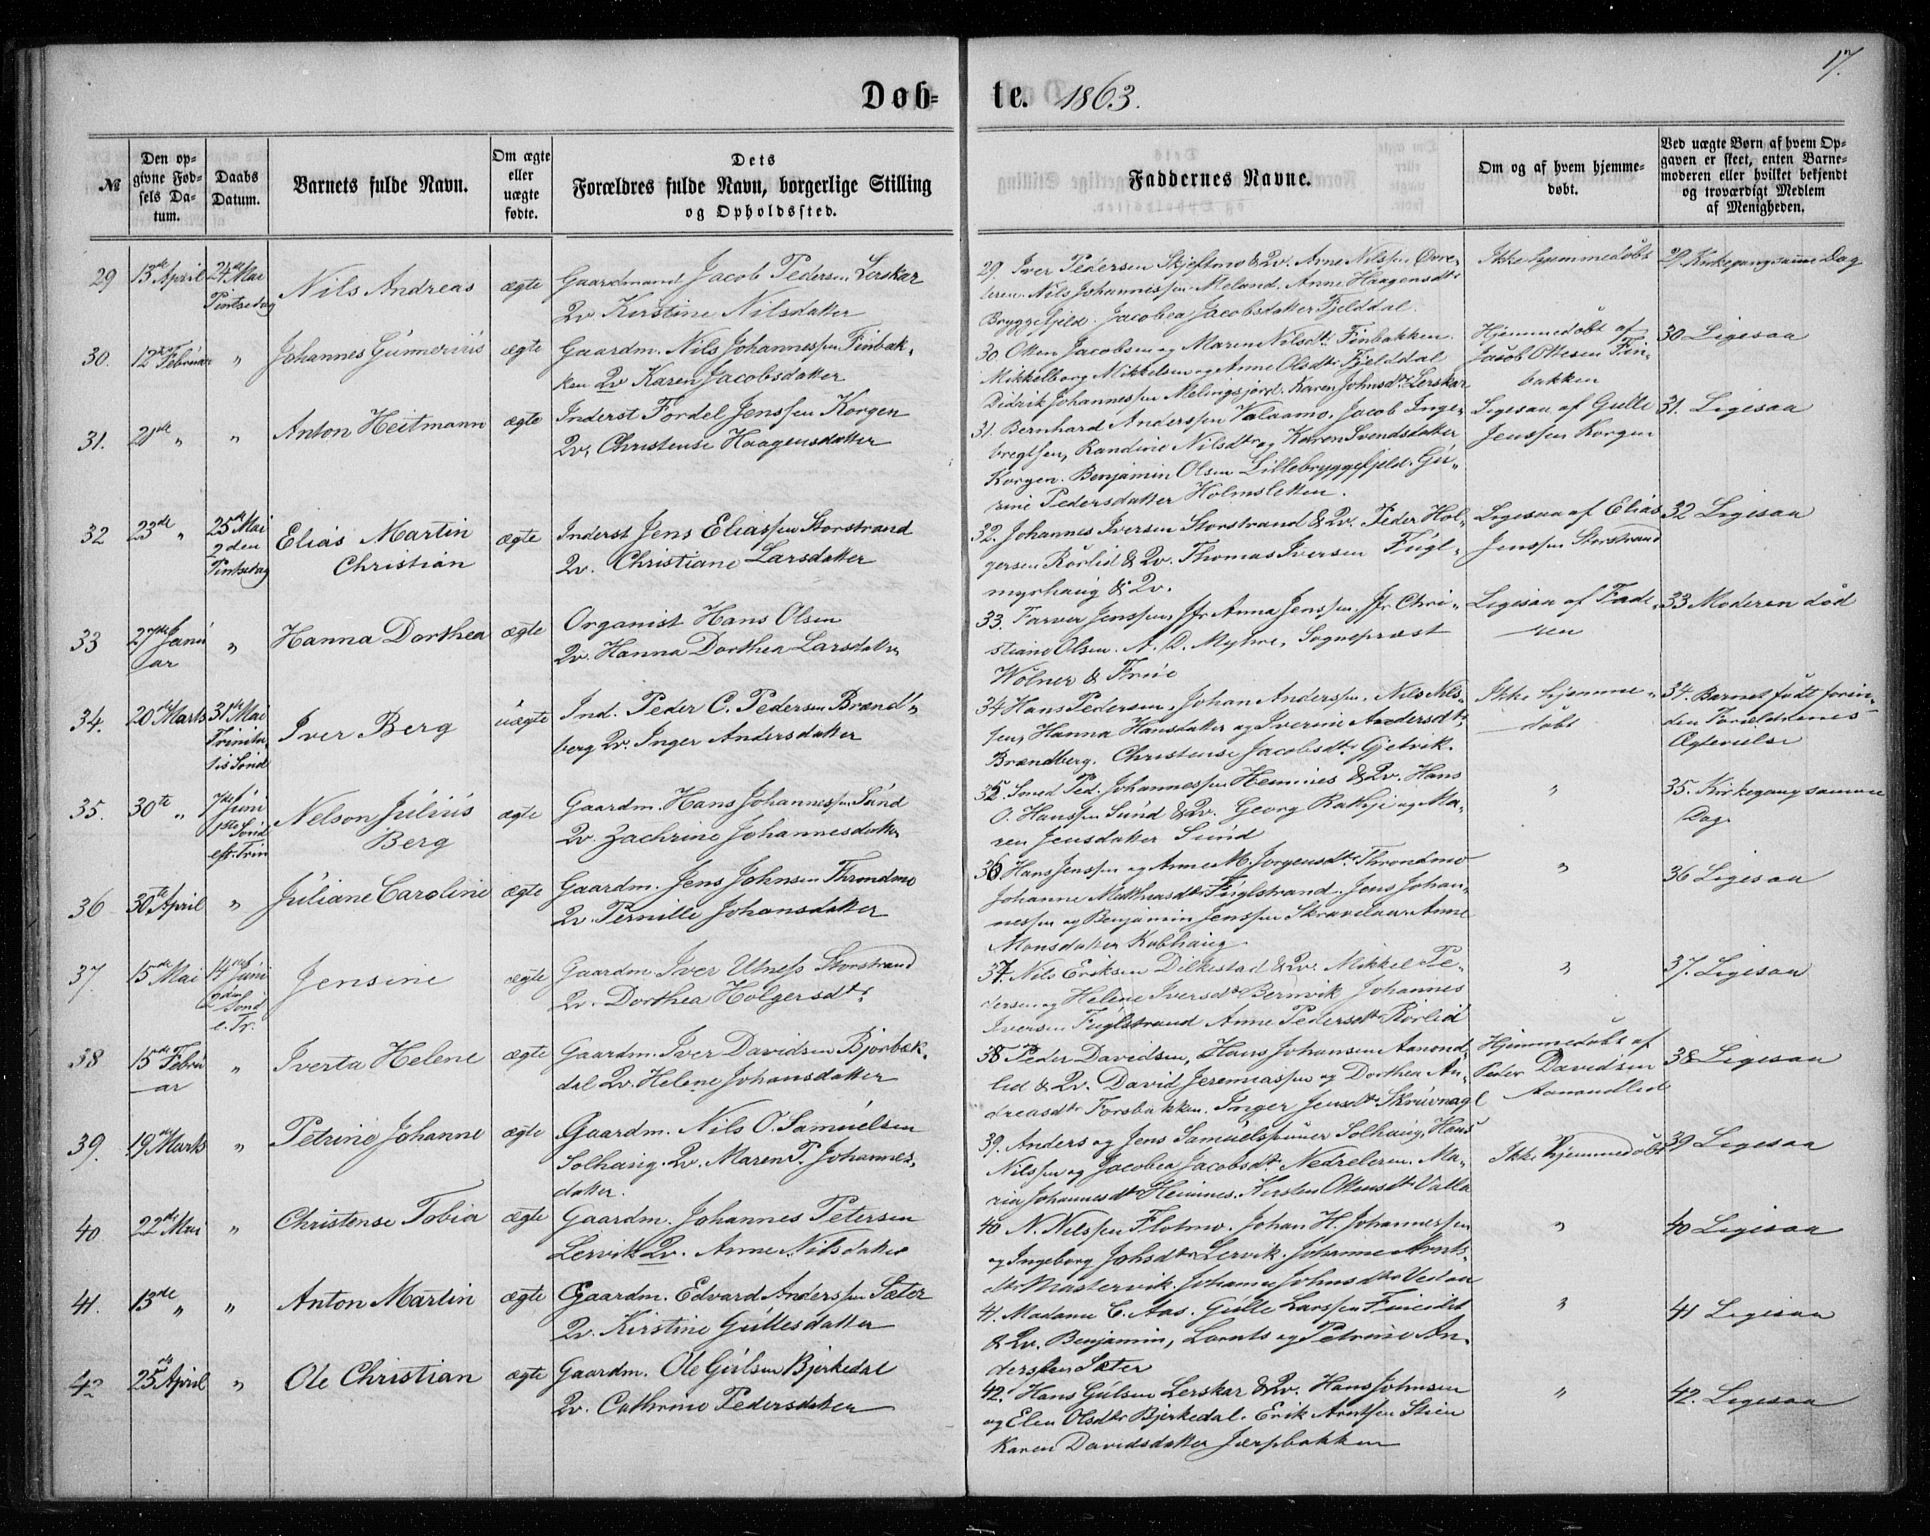 17.
Døb- te. 1863.
№
Den op-
givne Fød-
sels Da-
tum.
Daabs
Datum.
Barnets fulde Navn.
Om ægte
eller
uægte
fødte.
Dets
Forældres fulde Navn, borgerlige Stilling
og Opholdssted.
Faddernes Navne.
Om og af hvem hjemme-
døbt.
Ved uægte Børn af hvem Op-
gaven er skeet, enten Barne-
moderen eller hvilket bekjendt
og troværdigt Medlem
af Menigheden.
29 13de April 24de Mai
Pintsedag
Nils Andreas
ægte
Gaardmand Jacob Pedersen Lerskar
Qv. Kirstine Nilsdatter
29. Iver Pedersen Skjeftmo & Qv. Arne Nilssen Øvre-
leren. Nils Johannessen Meland. Anne Haagensdtr
Bryggefjeld. Jacobea Jacobsdatter Fjelddal.
Ikke hjemmedøbt
29. Kirkegang samme Dag
30. 12te Februar "
Johannes Gunnerius
ægte
Gaardm. Nils Johannessen Finbak-
ken Qv. Karen Jacobsdatter
30. Otten Jacobsen og Maren Nilsdtr Finbakken.
Mikkelborg Mikkelsen og Anne Olsdtr Fjelddal
Didrik Johannessen Melingsjord. Karen Johnsdtr Lerskar
Hjemmedøbt af
Jacob Ottesen Fin-
bakken
30 Ligesaa
31. 21de " "
Anton Heitmann
ægte
Inderst Fordel Jenssen Korgen
Qv. Christense Haagensdatter
31. Bernhard Anderssen Valaamo. Jacob Inge-
bregtsen, Randine Nilsdtr og Karen Svendsdatter
Korgen. Benjamin Olsen Lillebryggefjeld. Gu-
rine Pedersdatter Holmsletten.
Ligesaa af Gulle
Jenssen Korgen
31. Ligesaa
32 23de " 25de Mai
2den
Pintsedag
Elias Martin
Christian
ægte
Inderst Jens Eliassen Storstrand
Qv. Christiane Larsdatter
32. Johannes Iversen Storstrand & Qv. Peder Hol-
gersen Rørlid & Qv. Thomas Iversen Fugl-
myrhaug & Qv.
Ligesaa af Elias
Jenssen Storstrand
32 Ligesaa
33 27de Janu
ar "
Hanna Dorthea
ægte
Organist Hans Olsen
Qv. Hanna Dorthea Larsdatter
33. Farver Jenssen, Jfr Anna Jenssen. Jfr Chri-
stiane Olsen. A. D. Myhre, Sognepræst
Wolner & Frue
Ligesaa af Fade-
ren
33 Moderen død
34. 20de Marts 31te Mai
Trinita-
tis Sønd
Iver Berg
uægte
Ind. Peder C. Pedersen Brænd-
berg Qv. Inger Andersdatter
34 Hans Pedersen, Johan Anderssen, Nils Nils-
sen, Hanna Hansdatter og Iverine Andersdtr
Brændberg. Christense Jacobsdtr Gjetvik.
Ikke hjemme-
døbt
34. Barnet født foren-
den Forældrenes
Ægtevielse
35. 30te " 7de Juni
1ste Sønd
eft. Trin
Nelson Julius
Berg
ægte
Gaardm. Hans Johannessen Sund
Qv. Zachrine Johannesdatter
35. Smed Ped. Johannessen Hemnes & Qv. Hans
O. Hanssen Sund & Qv. Georg Rathje og Ma-
ren Jensdatter Sund
"
35. Kirkegang samme
Dag.
36 30te April "
Juliane Caroline
ægte
Gaardm. Jens Johnsen Throndmo
Qv. Pernille Johansdatter
36 Hans Jenssen og Anne M. Jørgensdtr Throndmo
Johanne Mathiasdtr Fuglstrand. Jens Johan-
nessen og Benjamin Jenssen Skravelaar Anne
Monsdatter Kobhaug.
"
36 Ligesaa
37. 15de Mai 14de Juni
2den
Sønd
e. Tr.
Jensine
ægte
Gaardm Iver Utness Storstrand
Qv. Dorthea Holgersdtr
37. Nils Eriksen Dilkestad & Qv. Mikkel Pe-
dersen og Helene Iversdtr Bernvik Johannes
Iversen Fuglstrand Anne Pedersdtr Rørlid
"
37. Ligesaa
38 15de Febru
ar "
Iverta Helene
ægte
Gaardm. Iver Davidsen Bjørbæk-
dal Qv. Helene Johansdatter
38. Peder Davidsen, Hans Johansen Aanond-
lid & Qv. David Jeremiassen og Dorthea An-
dreasdtr Forsbakken. Inger Jensdtr Skruvnagl
Hjemmedøbt af
Peder Davidsen
Aanondlid
38 Ligesaa
39. 19de Marts "
Petrine Johanne
ægte
Gaardm. Nils O. Samuelsen
Solhaug. Qv. Maren P. Johannes-
datter.
39. Anders og Jens Samuelssønner Solhaug, Hans
Nilssen og Jacobea Jacobsdtr Nedreleren. Ma-
ria Johannesdtr Hemnes. Kirsten Ottensdtr Valla
Ikke hjemmedøbt
39 Ligesaa
40 22de Mai "
Christense Tobia
ægte
Gaardm. Johannes Petersen
Lervik Qv. Anne Nilsdatter
40 N. Nilssen Flotmo. Johan H. Johannessen
og Ingeborg Johsdtr Lervik. Johanne Arnts-
dtr Mastervik. Johanne Johnsdtr Vedaa
"
40 Ligesaa
41. 13de " "
Anton Martin
ægte
Gaardm. Edvard Anderssen Sæter
Qv. Kirstine Gullesdatter
41. Madame C. Aas. Gulle Larssen Fineidet
& Qv. Benjamin, Lornts og Petrine An-
derssen Sæter
"
41 Ligesaa
42 25de April "
Ole Christian
ægte
Gaardm. Ole Gulsen Bjerkedal
Qv. Cathrine Pedersdatter
42. Hans Gulsen Lerskar & Qv. Hans Johnsen
og Elen Olsdtr Bjerkedal. Erik Arntsen Stien
Karen Davidsdatter Jærpbakken
"
42. Ligesaa